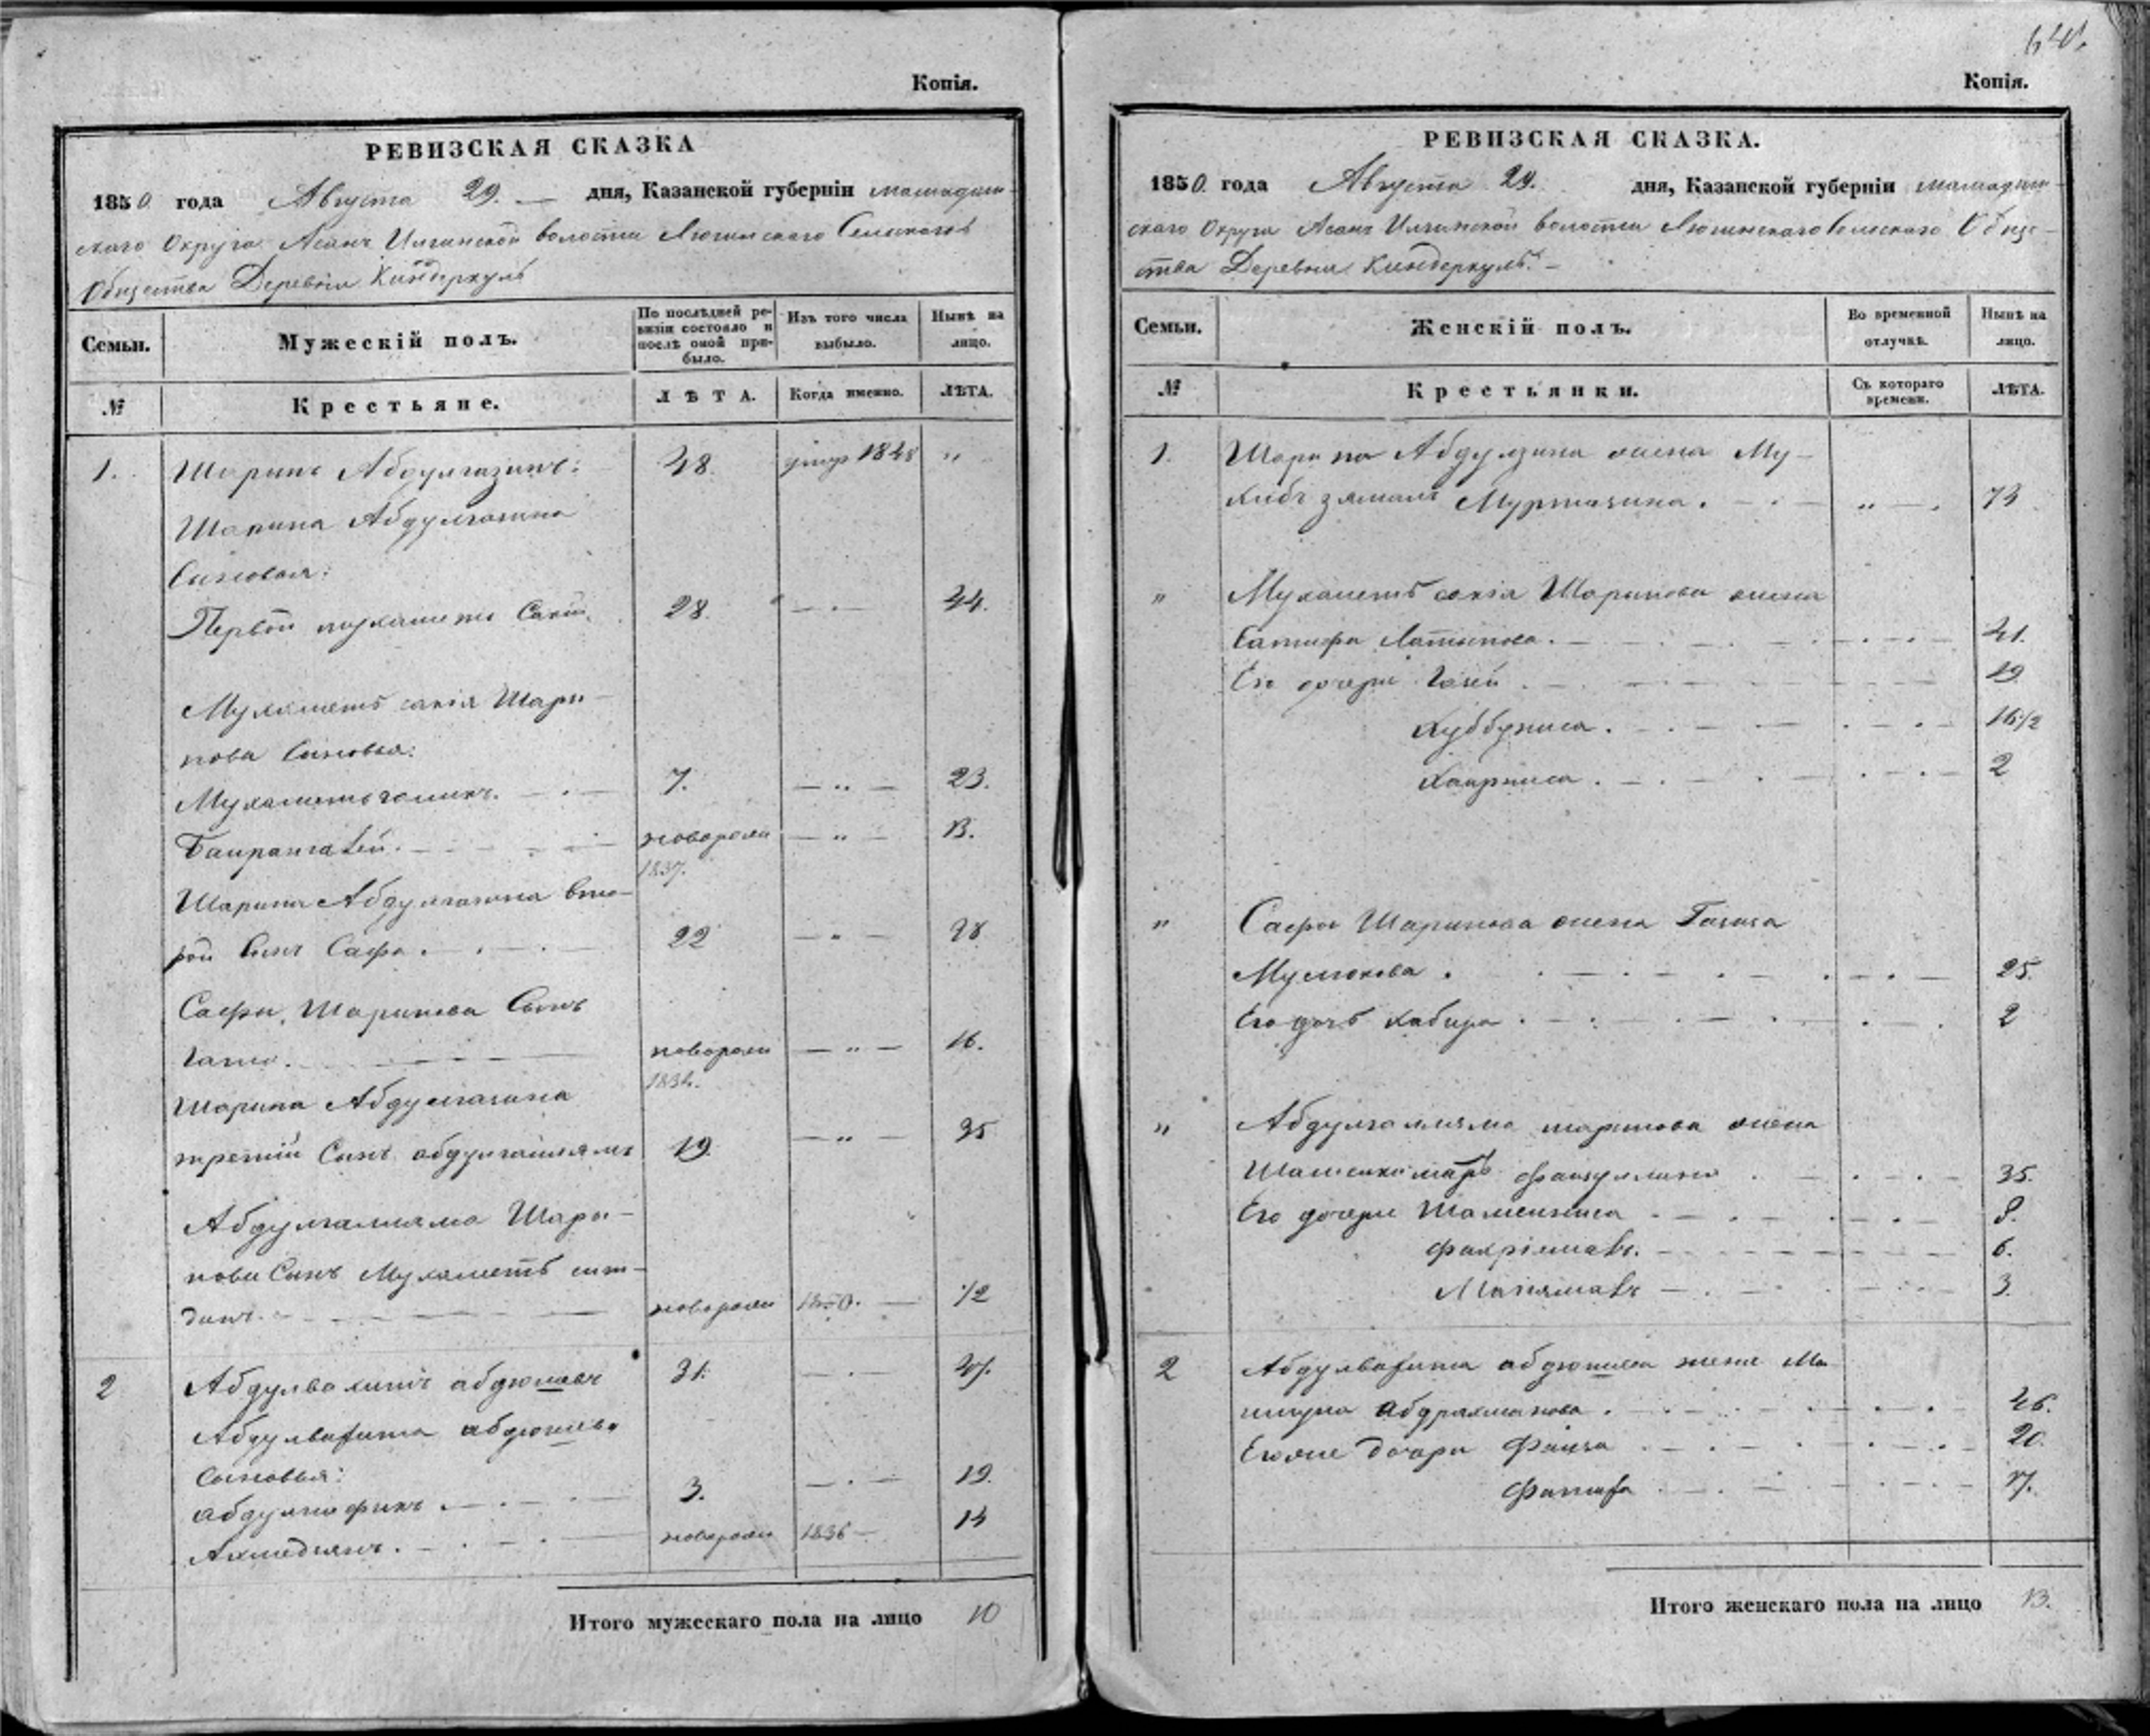 Копія.
РЕВИЗСКАЯ СКАЗКА
1850 года Августа 29. дня, Казанской губерніи мамадыш-
скаго Округа Асанъ Илгинской волости Сельскаго
Общества Деревни Киндеркуль
Семьи.
Мужескій полъ.
По послѣдней ре-
визіи состояло и
послѣ оной при-
было.
Изъ того числа
выбыло.
Нынѣ на
лицо.
№
Крестьяне.
ЛѢТА.
Когда именно.
ЛѢТА.
1. Шарипъ Абдулгазинъ: 48. умер 1848 "
Шарипа Абдулгазина
Сыновья:
Первой мухаметъ Сакій. 28. 44.
Мухаметъ сакія Шари-
пова Сыновья:
7. — " — 23.
новорож — " — 13.
1837.
Шарипа Абдулгазина вто-
рой Сынъ Сафа. 22 — " — 38
Сафы Шарипова Сынъ
новорож — " — 16.
1834.
Шарипа Абдулгазина
третій Сынъ абдулгаллямъ 19. — " — 35
Абдулгалляма Шари-
пова Сынъ Мухаметъ
динъ. новорож 1850. — 1/2
2 Абдулвахитъ абдюшевъ 31. 47.
Абдулвахита абдюшева
Сыновья:
3. 19.
Ахмедзянъ. новорож 1836 — 14
Итого мужескаго пола на лицо 10
Копія.
РЕВИЗСКАЯ СКАЗКА.
1850. года Августа 29. дня, Казанской губерніи мамадыш-
скаго Округа Асанъ Илгинской волости Сельскаго Общес-
тва Деревни Киндеркуль. —
Семьи.
Женскій полъ.
Во временной
отлучкѣ.
Нынѣ на
лицо.
№
Крестьянки.
Съ котораго
времени.
ЛѢТА.
1. Шарипа жена Му-
хибъ зямалъ Муртазина. " — . 73
" Мухаметъ сакія Шарипова жена
Латыпова. 41.
Его дочери 19
Хуббуниса. 16 1/2
Хаирниса. 2
" Сафы Шарипова жена Газиза
Муслюмова. 25.
Его дочь Хабира. 2
" Абдулгалляма шарипова жена
Шамсикамаръ файзуллина 35.
Его дочери Шамсиниса 8.
3.
2 Абдулвахита абдюшева жена Ма-
абдрахманова. 46.
Егоже дочери Фаиза 20.
Фатиха 17.
Итого женскаго пола на лицо 13.